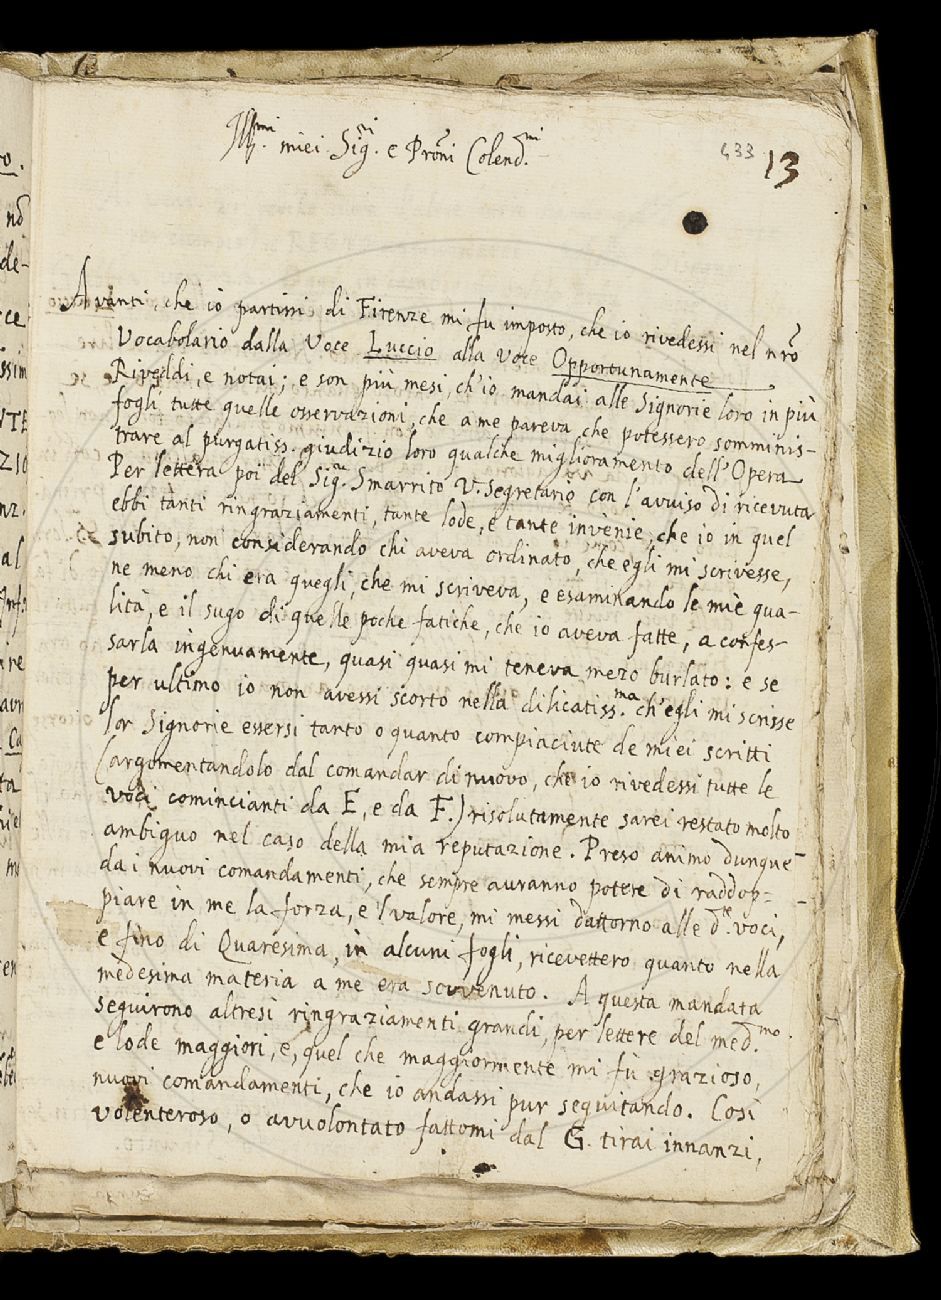 Ill.mi miei Sig.ri e Proñi Colend.mi
433 13
Avanti, che io partissi di Firenze mi fu imposto, che io rivedessi nel nrõ
Vocabolario dalla Voce Luccio alla Voce Opportunamente
Riveddi, e notai; e son più mesi, ch'io mandai alle Signorie loro in più
fogli tutte quelle osservazioni, che a me pareva che potessero somminis-
trare al purgatiss. giudizio loro qualche miglioramento dell'Opera
Per lettera poi del Sig.r Smarrito V. Segretario con l'avviso di ricevuta
ebbi tanti ringraziamenti, tante lode, e tante invenie, che io in quel
subito, non considerando chi aveva ordinato, che egli mi scrivesse,
ne meno chi era quegli, che mi scriveva, e esaminando le mie qua-
lità, e il sugo di quelle poche fatiche, che io aveva fatte, a confes-
sarla ingenuamente, quasi quasi mi teneva mezo burlato: e se
per ultimo io non avessi scorto nella dilicatiss.ma ch'egli mi scrisse
lor Signorie essersi tanto o quanto compiaciute de miei scritti
(argomentandolo dal comandar di nuovo, che io rivedessi tutte le
voci comincianti da E, e da F.) risolutamente sarei restato molto
ambiguo nel caso della mia reputazione. Preso animo dunque
da i nuovi comandamenti, che sempre avranno potere di raddop=
piare in me la forza, e 'l valore, mi messi dattorno alle d.e voci,
e fino di Quaresima, in alcuni fogli, ricevettero quanto nella
medesima materia a me era sovvenuto. A questa mandata
seguirono altresì ringraziamenti grandi, per lettere del med.mo
e lode maggiori, e, quel che maggiormente mi fù grazioso,
nuovi comandamenti, che io andassi pur seguitando. Così
volenteroso, o avvolontato fattomi dal G. tirai innanzi,